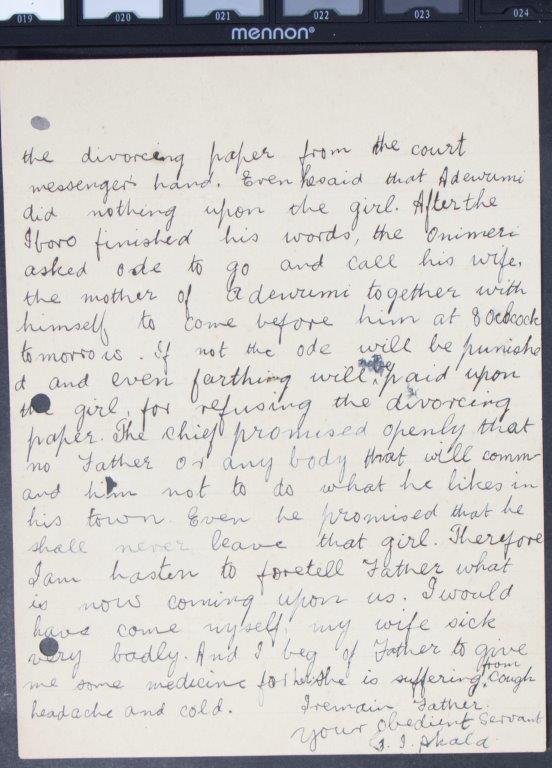 019 020 021 022 023 024
mennon®
the divorceing paper from the court
messenger's hand. Even he said that Adewumi
did nothing upon the girl. After the
Iboro finished his words, the Onimeri
asked ode to go and call his wife,
the mother of adewumi together with
himself to come before him at 8 Oclcock
tomorrow. If not the ode will be punishe
d and even farthing will not be paid upon
the girl, for refusing the divorcing
paper. The chief promised openly that
no Father or any body that will comm
and him not to do what he likes in
his town. Even he promised that he
shall never leave that girl. Therefore
I am hasten to foretell Father what
is now coming upon us. I would
have come myself, my wife sick
very badly. And I beg of Father to give
me some medicine for her she is suffering from cough
headache and cold. I remain Father.
Your Obedient Servant
J. I. Akala